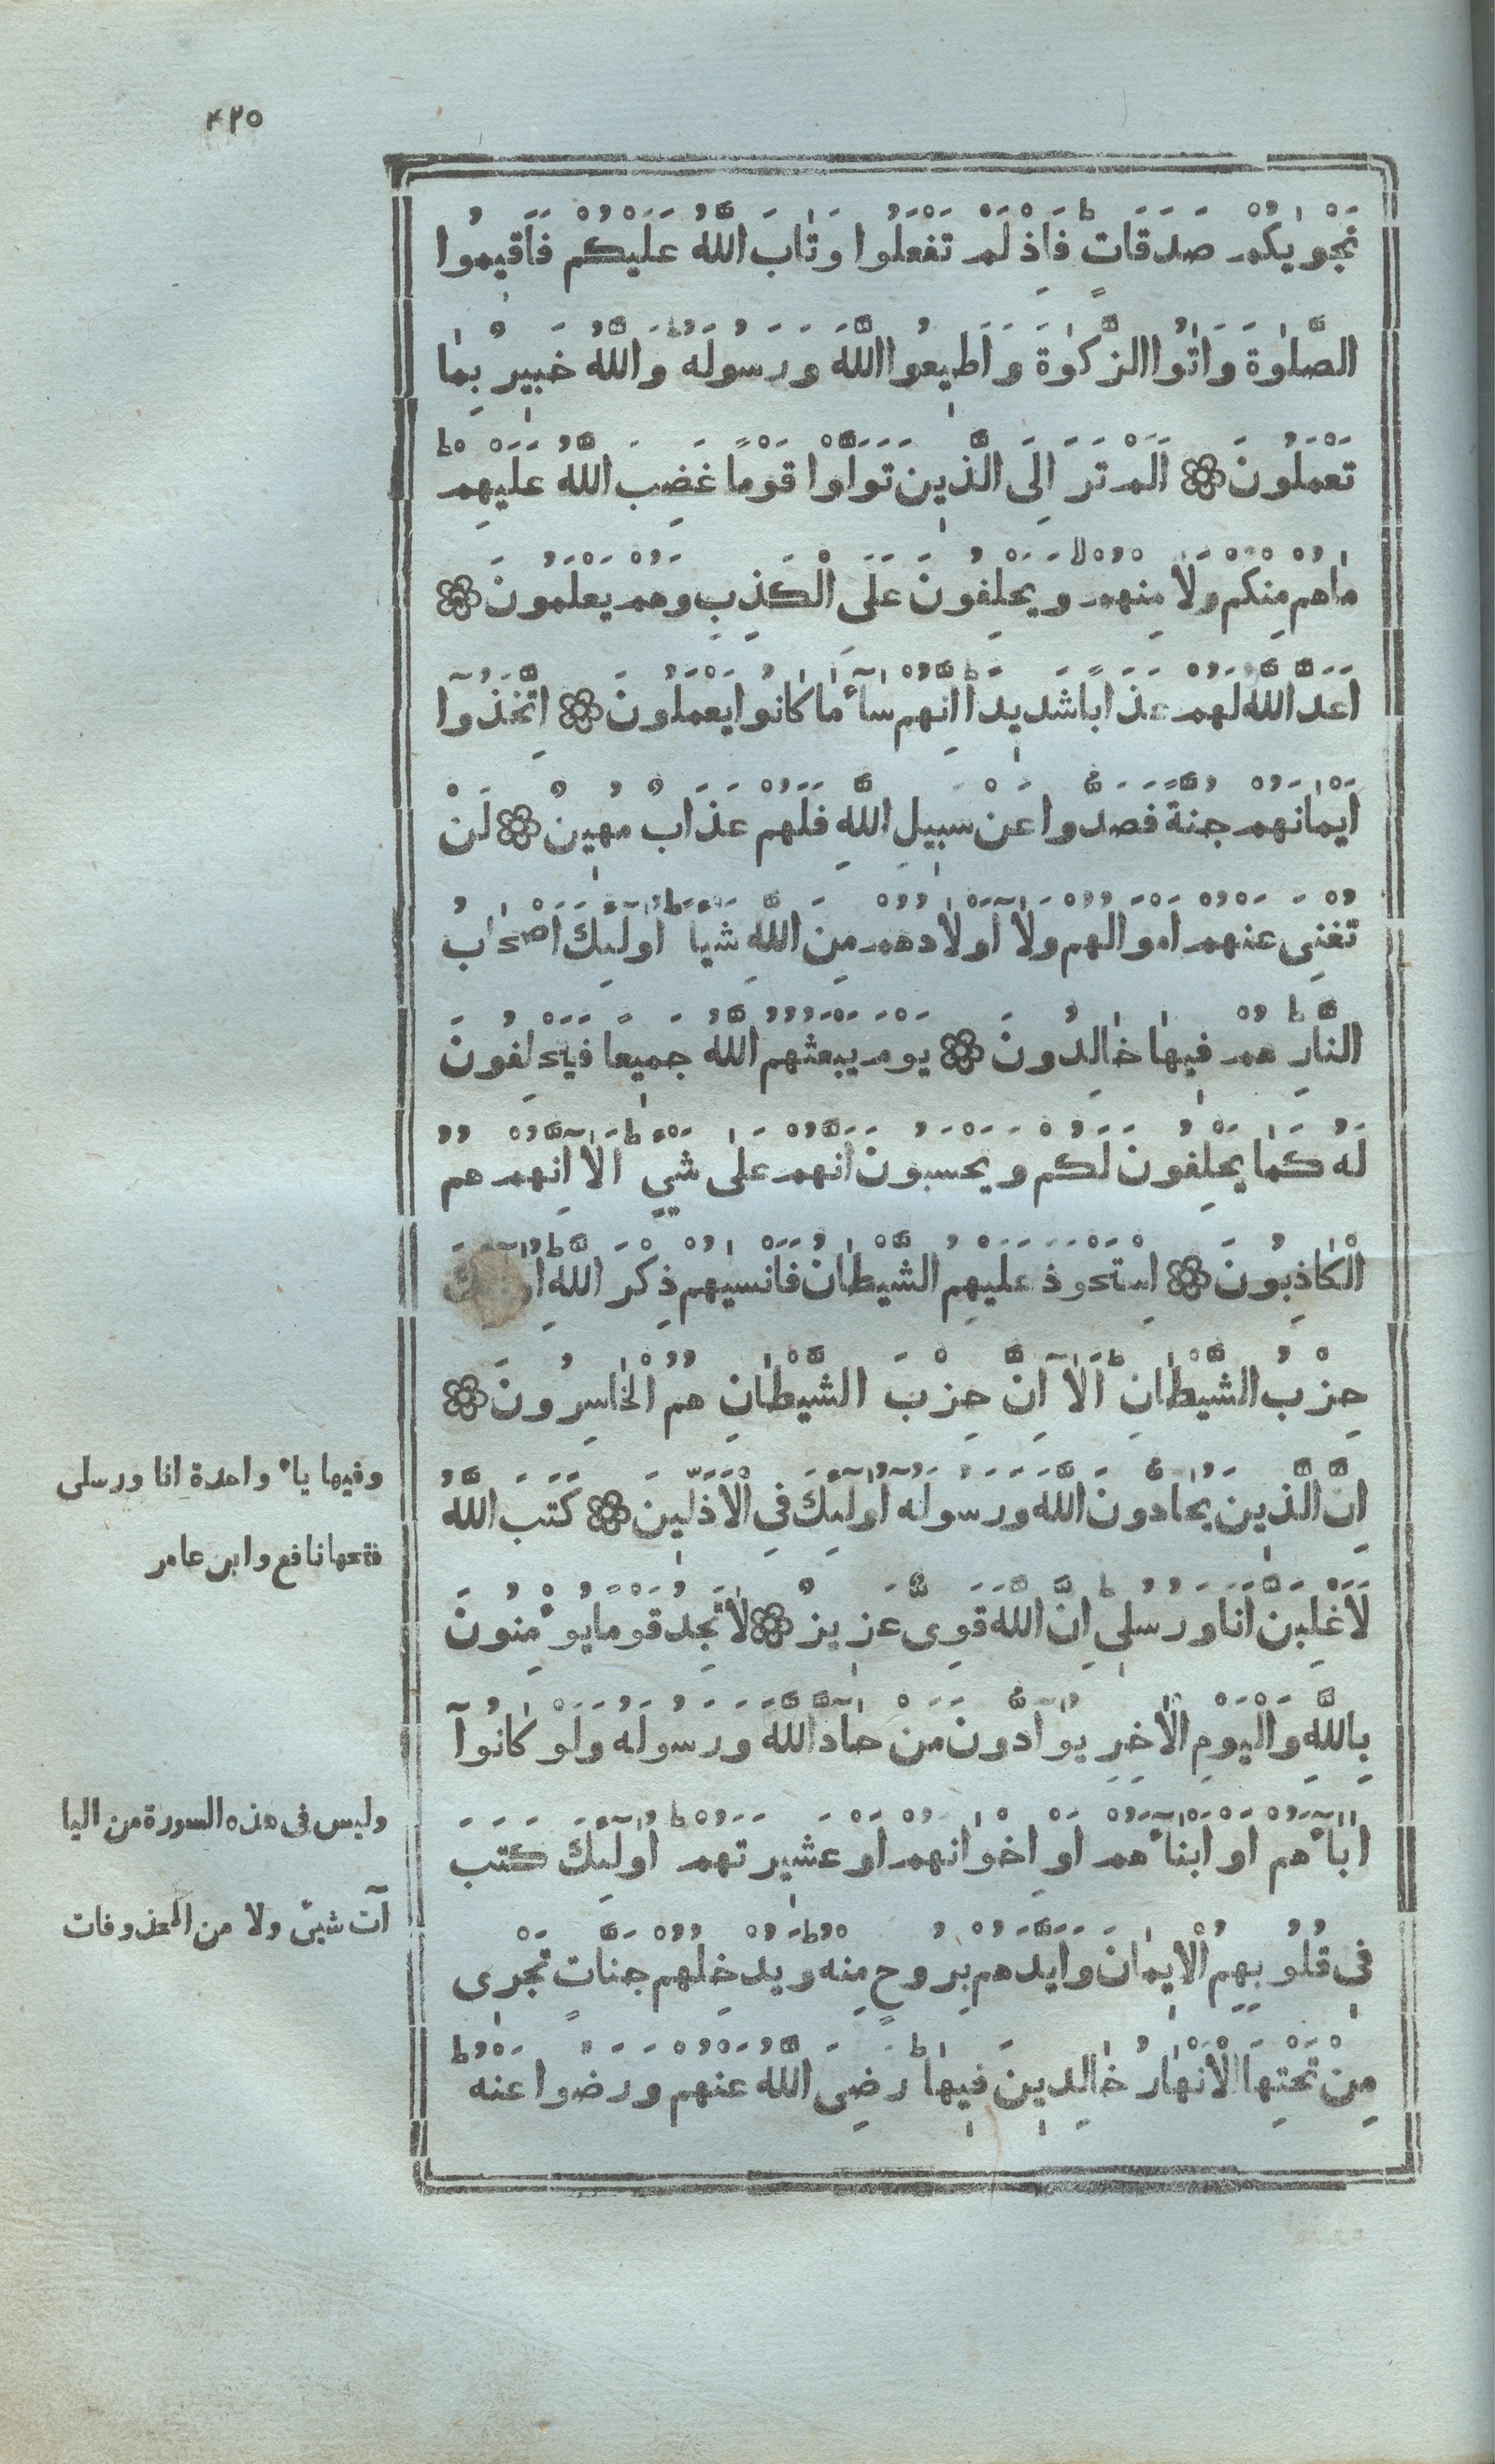 ۴۲۵
نَجْوٰیكُمْ صَدَقَاتٍ ؕ فَاِذْ لَمْ تَفْعَلُوا وَتَابَ اللّٰهُ عَلَيْكُمْ فَاَقِيمُوا
الصَّلٰوةَ وَاٰتُوا الزَّكٰوةَ وَاَطِيعُوا اللّٰهَ وَرَسُولَهُ ؕ وَاللّٰهُ خَبِيرٌ بِمٰا
تَعْمَلُونَ ۞ اَلَمْ تَرَ اِلَى الَّذِينَ تَوَلَّوْا قَوْمًا غَضِبَ اللّٰهُ عَلَيْهِمْ ؕ
مٰا هُمْ مِنْكُمْ وَلَا مِنْهُمْ ۙ وَيَحْلِفُونَ عَلَى الْكَذِبِ وَهُمْ يَعْلَمُونَ ۞
اَعَدَّ اللّٰهُ لَهُمْ عَذَابًا شَدِيدًا ؕ اِنَّهُمْ سَآءَ مٰا كٰانُوا يَعْمَلُونَ ۞ اِتَّخَذُوٓا
اَيْمٰانَهُمْ جُنَّةً فَصَدُّوا عَنْ سَبِيلِ اللّٰهِ فَلَهُمْ عَذَابٌ مُهِينٌ ۞ لَنْ
تُغْنِىَ عَنْهُمْ اَمْوَالُهُمْ وَلَآ اَوْلَادُهُمْ مِنَ اللّٰهِ شَيْـًٔا ؕ اُولٰٓئِكَ اَصْحٰابُ
النَّارِ ؕ هُمْ فِيهٰا خٰالِدُونَ ۞ يَوْمَ يَبْعَثُهُمُ اللّٰهُ جَمِيعًا فَيَحْلِفُونَ
لَهُ كَمٰا يَحْلِفُونَ لَكُمْ وَيَحْسَبُونَ اَنَّهُمْ عَلٰى شَيْءٍ ؕ اَلَآ اِنَّهُمْ هُمُ
الْكٰاذِبُونَ ۞ اِسْتَحْوَذَ عَلَيْهِمُ الشَّيْطٰانُ فَاَنْسٰيهُمْ ذِكْرَ اللّٰهِ ؕ اُولٰٓئِكَ
حِزْبُ الشَّيْطٰانِ ؕ اَلَآ اِنَّ حِزْبَ الشَّيْطٰانِ هُمُ الْخٰاسِرُونَ ۞
اِنَّ الَّذِينَ يُحٰادُّونَ اللّٰهَ وَرَسُولَهُ اُولٰٓئِكَ فِى الْاَذَلِّينَ ۞ كَتَبَ اللّٰهُ
لَاَغْلِبَنَّ اَنَا وَرُسُلِى ؕ اِنَّ اللّٰهَ قَوِىٌّ عَزِيزٌ ۞ لٰا تَجِدُ قَوْمًا يُؤْمِنُونَ
بِاللّٰهِ وَالْيَوْمِ الْاٰخِرِ يُوَآدُّونَ مَنْ حٰآدَّ اللّٰهَ وَرَسُولَهُ وَلَوْ كَانُوٓا
اٰبَآءَهُمْ اَوْ اَبْنَآءَهُمْ اَوْ اِخْوَانَهُمْ اَوْ عَشِيرَتَهُمْ ؕ اُولٰٓئِكَ كَتَبَ
فِى قُلُوبِهِمُ الْاِيمٰانَ وَاَيَّدَهُمْ بِرُوحٍ مِنْهُ ؕ وَيُدْخِلُهُمْ جَنَّاتٍ تَجْرِى
مِنْ تَحْتِهَا الْاَنْهٰارُ خٰالِدِينَ فِيهٰا ؕ رَضِىَ اللّٰهُ عَنْهُمْ وَرَضُوا عَنْهُ ؕ
وفيها ياء واحدة انا ورسلى
فتحها نافع وابن عامر
وليس فى هذه السورة من اليا
آت شىء ولا من المحذوفات